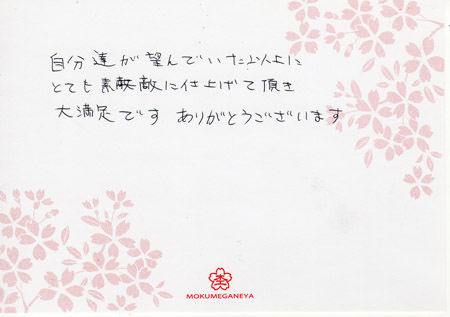 自分達が望んでいた以上に
とても素敵に仕上げて頂き
大満足です ありがとうございます
MOKUMEGANEYA